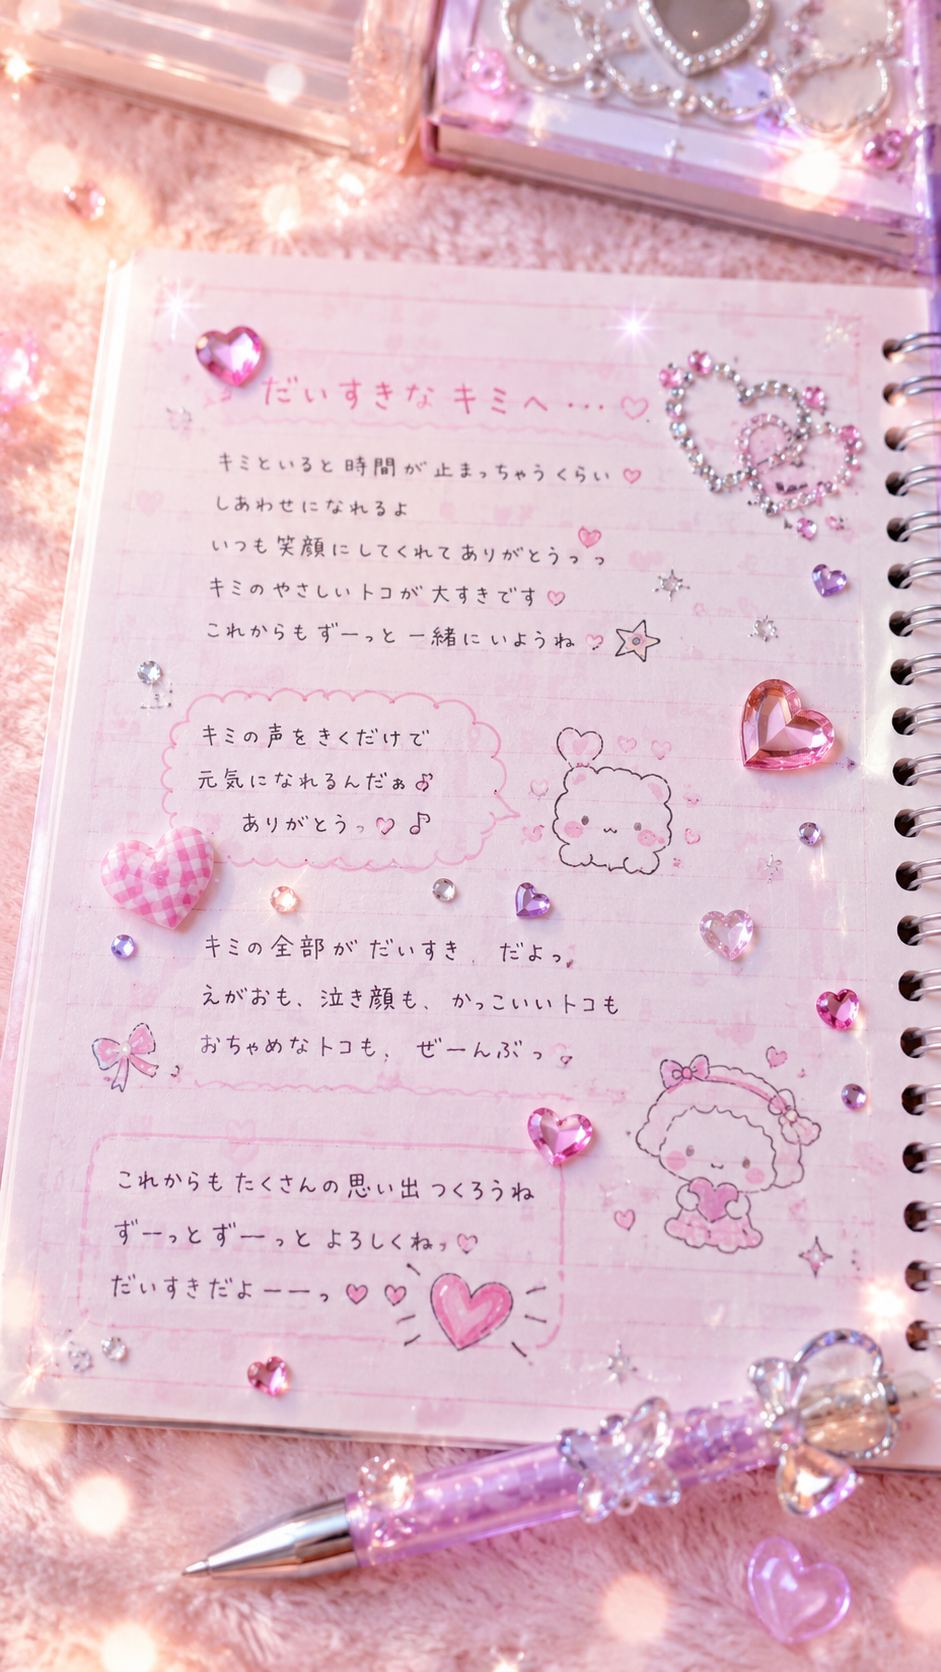 だいすきな キミへ…♡
キミといると 時間が 止まっちゃうくらい♡
しあわせになれるよ
いつも 笑顔にしてくれて ありがとうっっ
キミの やさしい トコが 大すきです♡
これからも ずーっと 一緒に いようね♡
キミの声をきくだけで
元気になれるんだぁ♪
ありがとうっ♡♪
キミの全部が だいすき だよっ
えがおも、泣き顔も、かっこいいトコも
おちゃめなトコも、ぜーんぶっ
これからも たくさんの思い出 つくろうね
ずーっと ずーっと よろしくねっ♡
だいすきだよーーっ♡♡